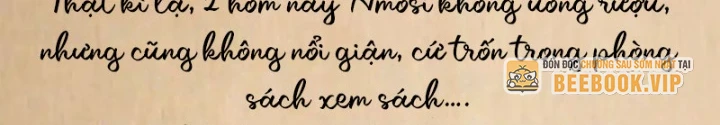 Thật kì lạ, 2 hôm nay Amosi không uống rượu,
nhưng cũng không nổi giận, cứ trốn trong phòng
ĐÓN ĐỌC CHƯƠNG SAU SỚM NHẤT TẠI
BEEBOOK.VIP
sách xem sách....